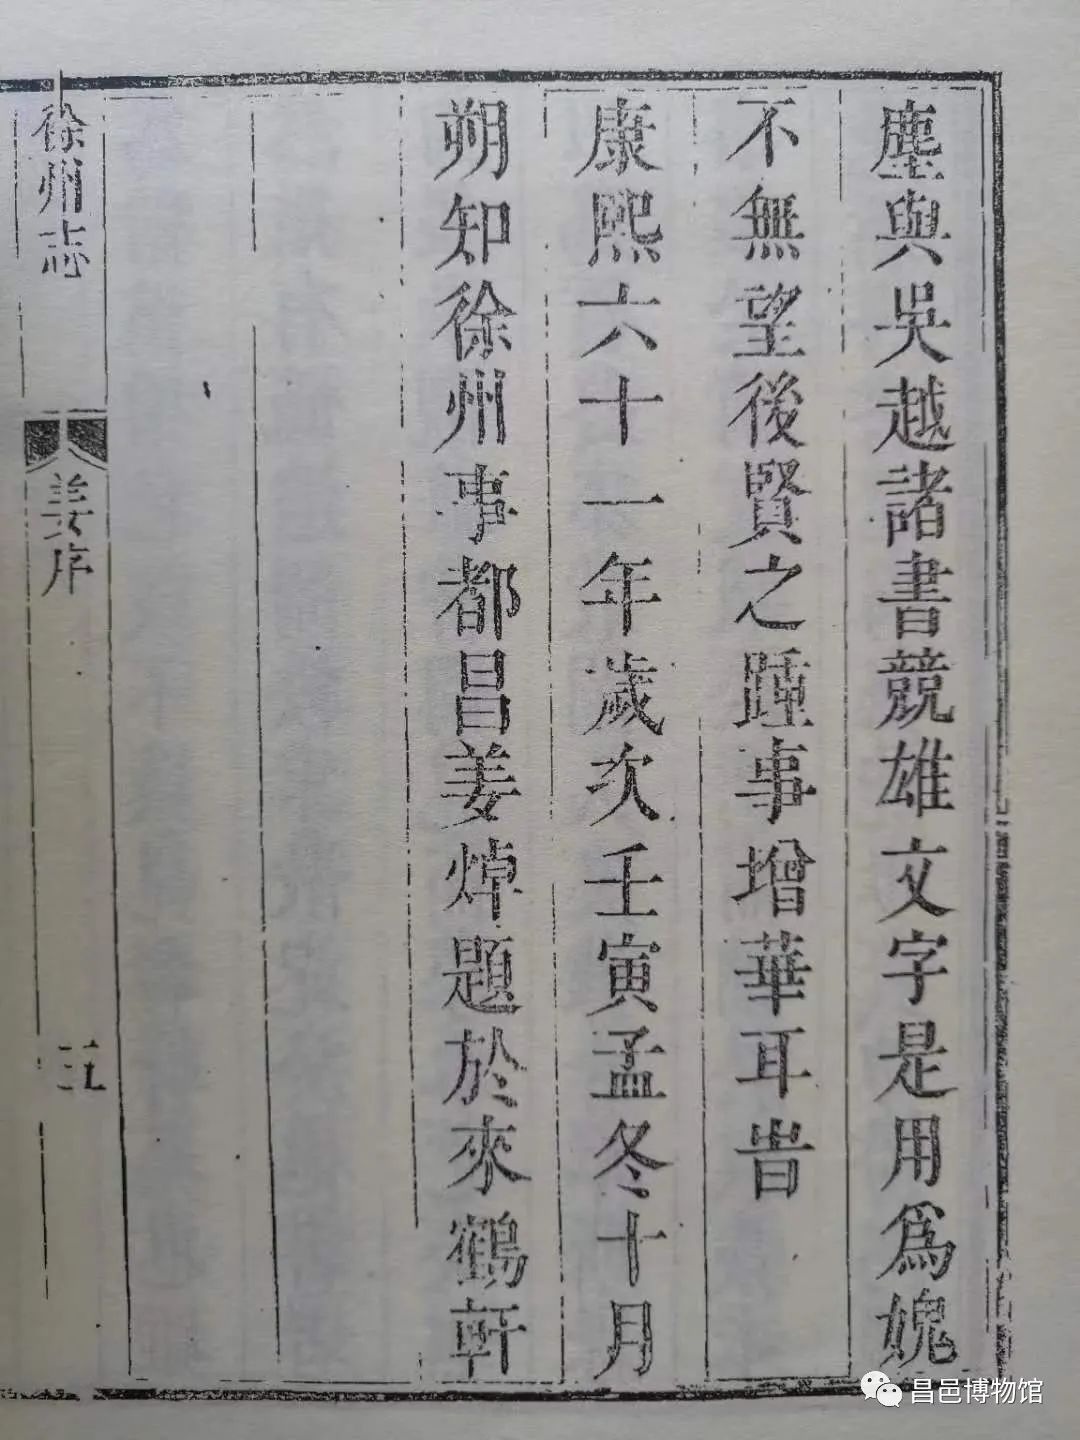 塵與吳越諸書競雄文字是用爲媿
不無望後賢之踵事增華耳旹
康熙六十一年歲次壬寅孟冬十月
朔知徐州事都昌姜焯題於來鶴軒
徐州志
姜序
五
昌邑博物馆